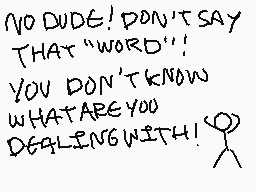 NO DUDE! DON'T SAY
THAT "WORD"!
YOU DON'T KNOW
WHAT ARE YOU
DEALING WITH!